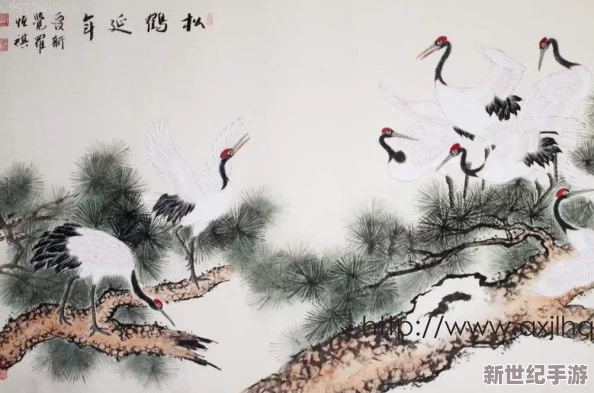 松鹤延年
爱新
觉罗
恒祺
http://www.axjlhq
新世纪手游